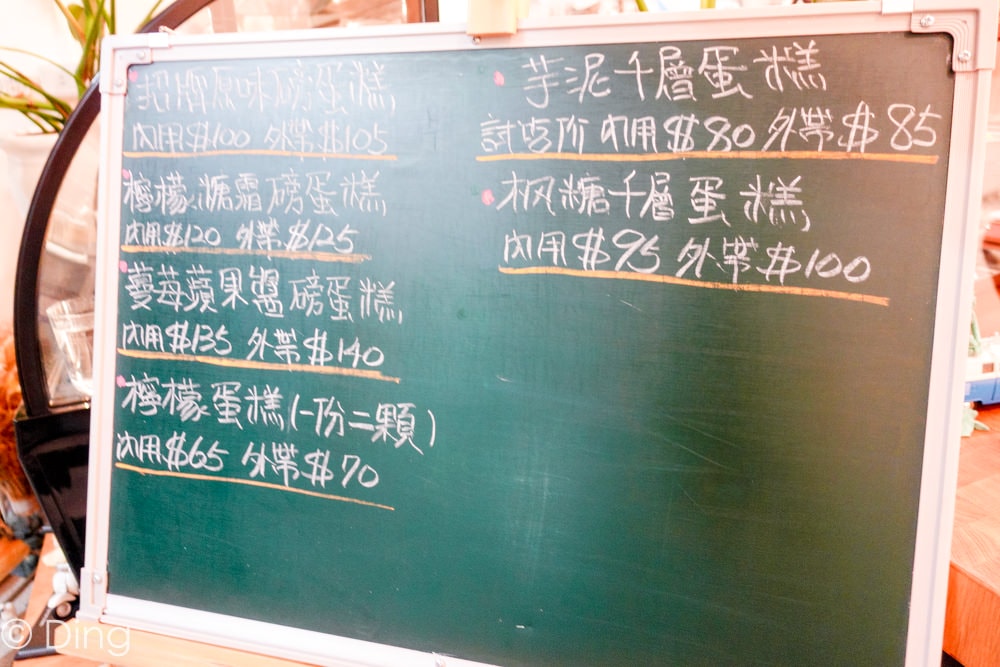 招牌原味磅蛋糕
內用$100 外帶$105
檸檬糖霜磅蛋糕
內用$120 外帶$125
蔓莓蘋果醬磅蛋糕
內用$135 外帶$140
檸檬蛋糕(一份二顆)
內用$65 外帶$70
芋泥千層蛋糕
討喜价 內用$80 外帶$85
枫糖千層蛋糕
內用$95 外帶$100
© Ding